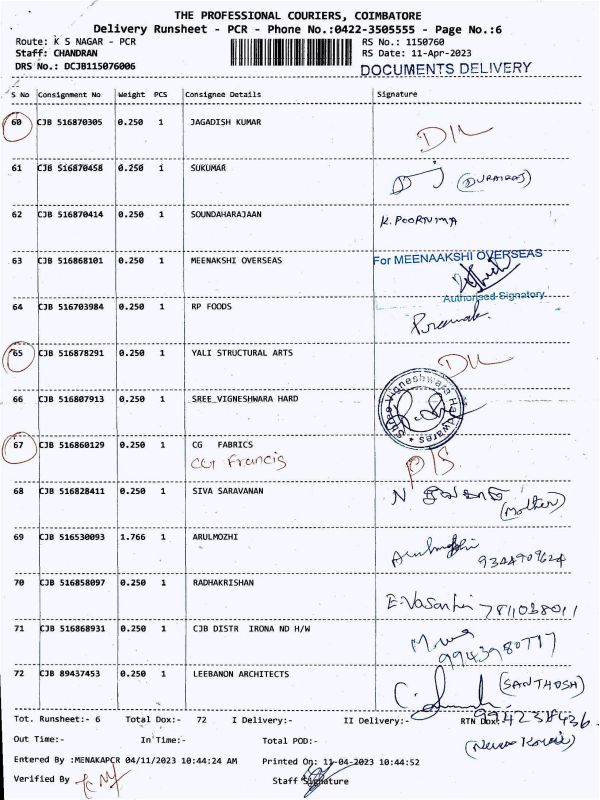 THE PROFESSIONAL COURIERS, COIMBATORE
Delivery Runsheet - PCR - Phone No.:0422-3505555 - Page No.:6
Route: K S NAGAR - PCR RS No.: 1150760
Staff: CHANDRAN RS Date: 11-Apr-2023
DRS No.: DCJB115076006 DOCUMENTS DELIVERY
S No Consignment No Weight PCS Consignee Details Signature
60 CJB 516870305 0.250 1 JAGADISH KUMAR D/L
61 CJB 516870458 0.250 1 SUKUMAR (DURAIRAJ)
62 CJB 516870414 0.250 1 SOUNDAHARAJAAN K. POORNIMA
63 CJB 516868101 0.250 1 MEENAKSHI OVERSEAS For MEENAAKSHI OVERSEAS
Authorised Signatory
64 CJB 516703984 0.250 1 RP FOODS
65 CJB 516878291 0.250 1 YALI STRUCTURAL ARTS D/L
66 CJB 516807913 0.250 1 SREE VIGNESHWARA HARD Sree Vigneshwara Hardwares
67 CJB 516860129 0.250 1 CG FABRICS P/S.
CG Francis
68 CJB 516828411 0.250 1 SIVA SARAVANAN N
(Mother)
69 CJB 516530093 1.766 1 ARULMOZHI Arulmozhi
9344909624
70 CJB 516858097 0.250 1 RADHAKRISHAN E. Vasanthi 7811038011
71 CJB 516868931 0.250 1 CJB DISTR IRONA ND H/W
9943980777
72 CJB 89437453 0.250 1 LEEBANON ARCHITECTS (SANTHOSH)
9942384436
Tot. Runsheet:- 6 Total Dox:- 72 I Delivery:- II Delivery:- RTN Dox:-
Out Time:- In Time:- Total POD:-
Entered By :MENAKAPCR 04/11/2023 10:44:24 AM Printed On: 11-04-2023 10:44:52
Verified By Staff Signature